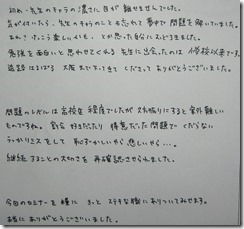 初め、先生のキャラの濃さに目が離せませんでした。
気が付いたら、先生のキャラのことも忘れて夢中で問題を解いていました。
あれ?けっこう楽しいかも、とか思った自分にスビ
勉強を面白いと思わせてくれる先生に出会えたのは小学校以来です。
遠路はるばる大阪まで来てくださってありがとうございました。
問題のレベルは高校生程度でしたが久々にすると案外難しい
ものですね。割合好きだったり得意だった問題でくだらない
うっかりミスをして恥ずかしいやら悲しいやら…。
継続することの大切さを再確認させられました。
今日のセミナーを糧にきっとステキな職にありついてみせます。
本当にありがとうございました。